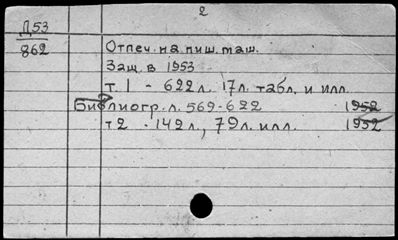 2
Д53
862
Отпеч. на пиш. маш.
Защ. в 1953
т. 1 - 622 л. 17 л. табл. и илл.
Библиогр. л. 569-622 1952
т 2 - 142 л., 79 л. илл. 1952